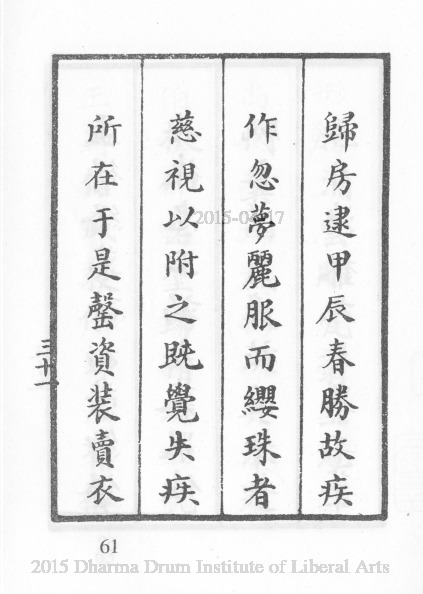 歸房逮甲辰春勝故疾
作忽夢麗服而纓珠者
慈視以附之既覺失疾
所在于是罄資装賣衣
三十一
61
2015-04-17
2015 Dharma Drum Institute of Liberal Arts